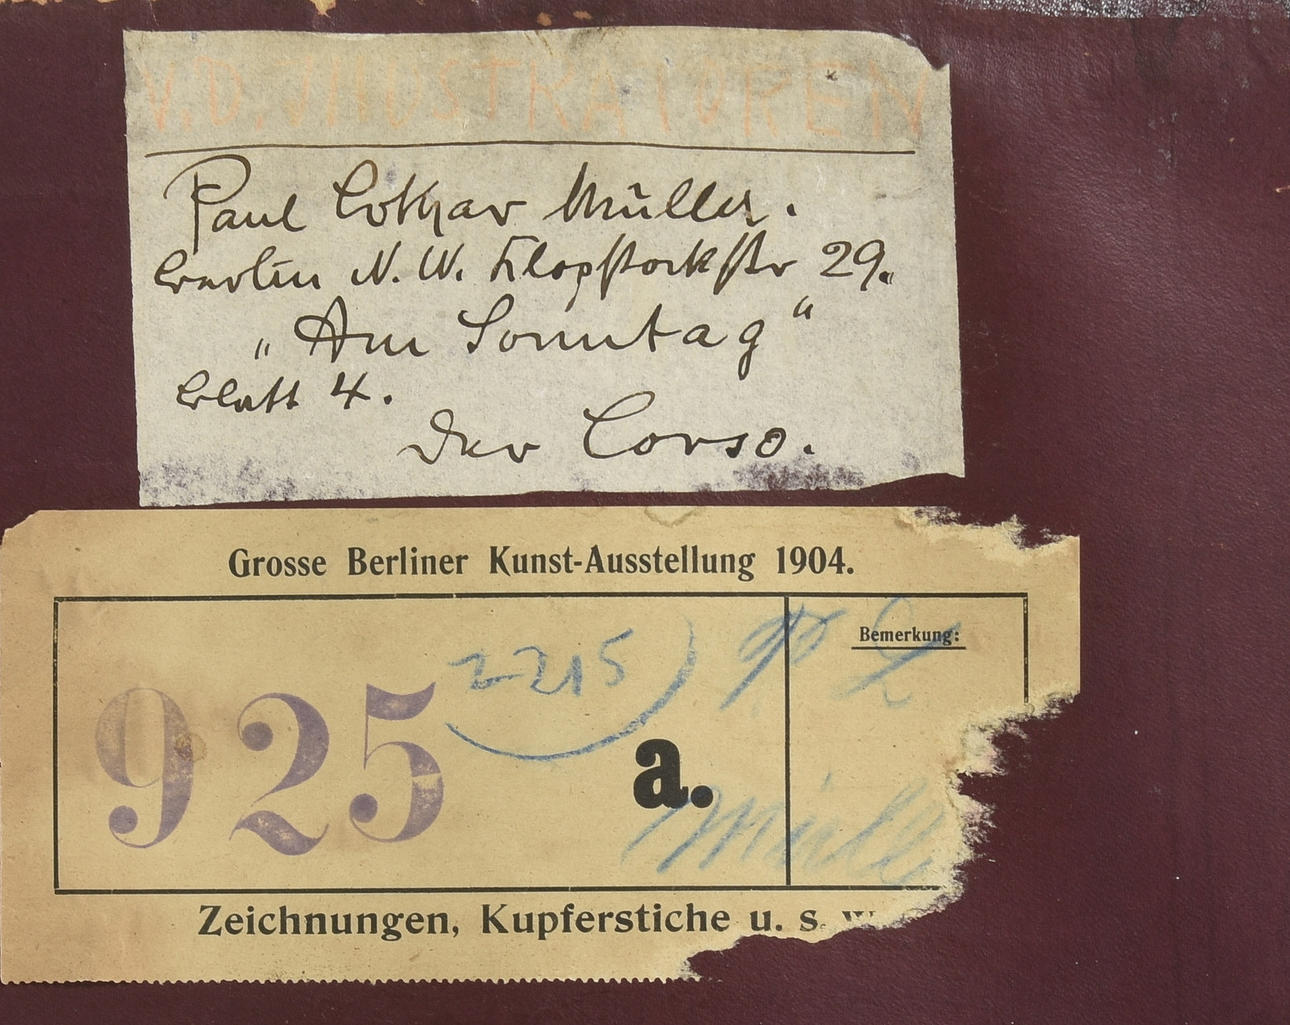 V.D. JllUSTRATOREN
Paul Lothar Müller.
Berlin N.W. Klopstockstr 29.
„Am Sonntag“
Blatt 4.
Der Corso.
Grosse Berliner Kunst-Ausstellung 1904.
Bemerkung:
2215
925
a.
Müll
Zeichnungen, Kupferstiche u. s. w.